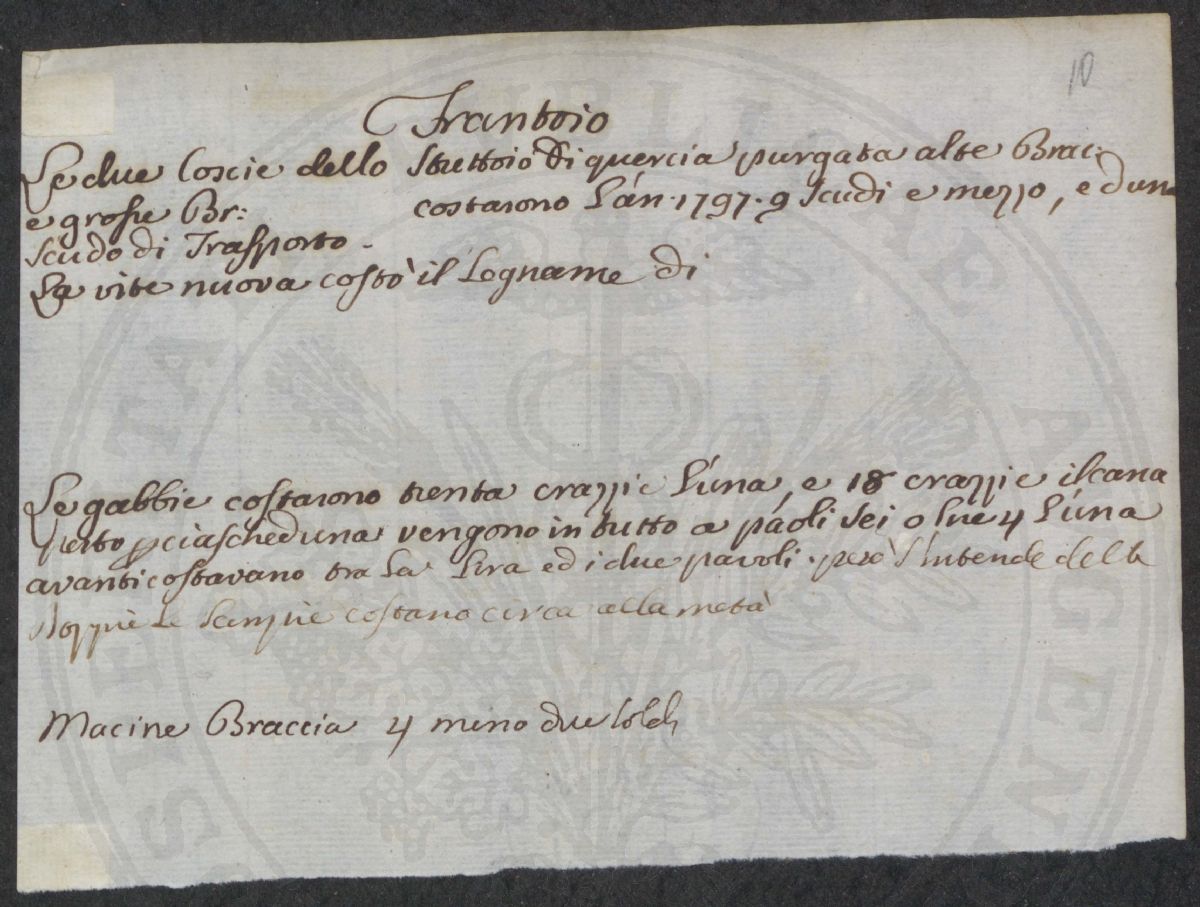 10
Frantoio
Le due Coscie dello Strettoio di quercia purgata alte Brac:
e grosse Br: costarono L'án. 1797. 9 Scudi e mezzo, e d'uno
Scudo di Trasporto.
La vite nuova costò il Legname di
Le gabbie costarono trenta crazzie L'una, e 18 crazzie il cana
petto ciascheduna vengono in tutto a páoli sei o lire 4 L'una
avanti costavano tra La Lira ed i due pavoli. però s'intende delle
doppie Le Sempie costano circa alla metà
Macine Braccia 4 meno due soldi
SOCIETA AGEN